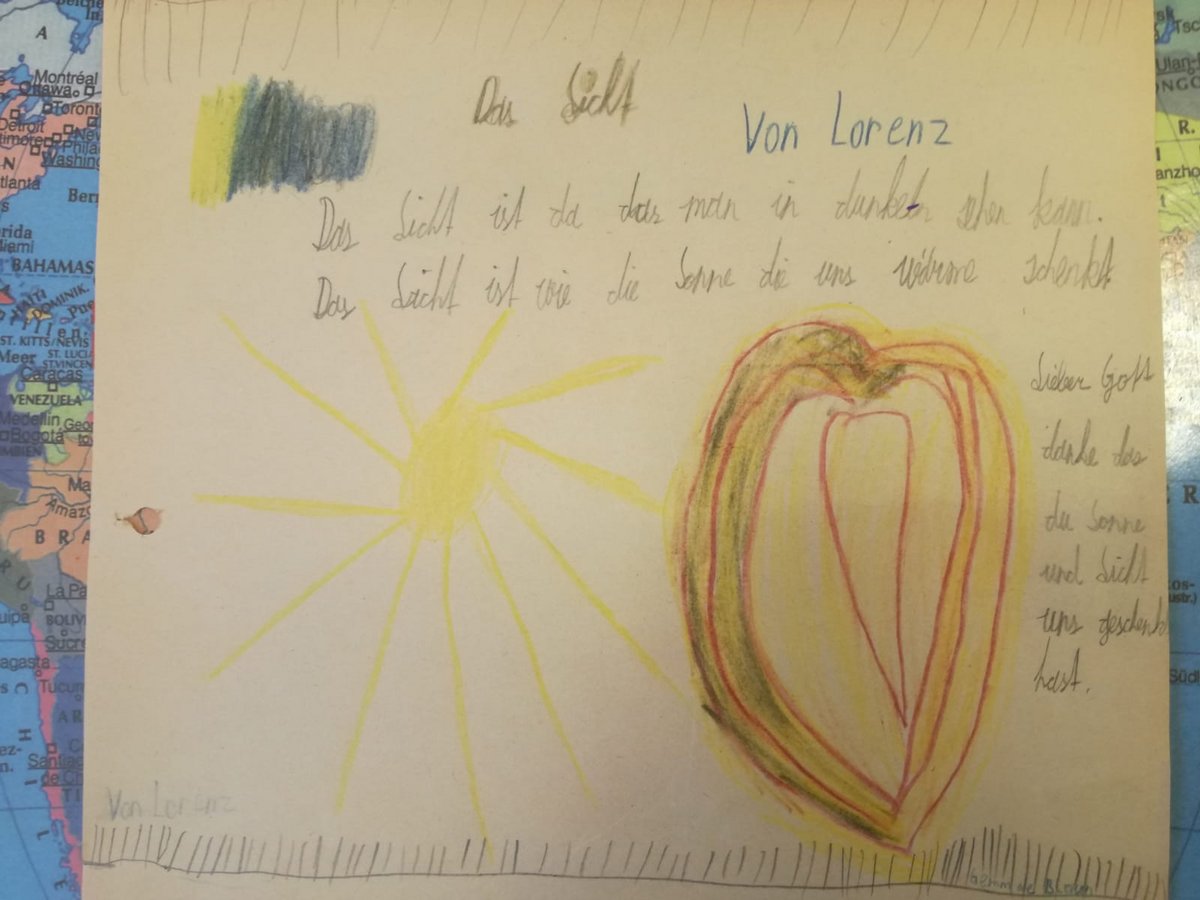 Das Licht
Von Lorenz
Das Licht ist da das man in dunkeln sehen kann.
Das Licht ist wie die Sonne die uns wärme schenkt
Lieber Gott
danke das
du Sonne
und Licht
uns geschenk
hast.
Von Lorenz
A
Montréal
Ottawa
Toronto
Detroit
Washing
N
tlanta
Ber
rida
Miami
BAHAMAS
HAITI
DOMINIK.
ST. KITTS/NEVIS
Meer
ST. LUCI
ST.VINCEN
Caracas
VENEZUELA
Medellín
Geo
Bogotá
Ma
Amazo
B R A
La Pa
Sucre
Tucum
Santiag
de Ch
Tsc
Ulan-
R.
anzho
R
Südl